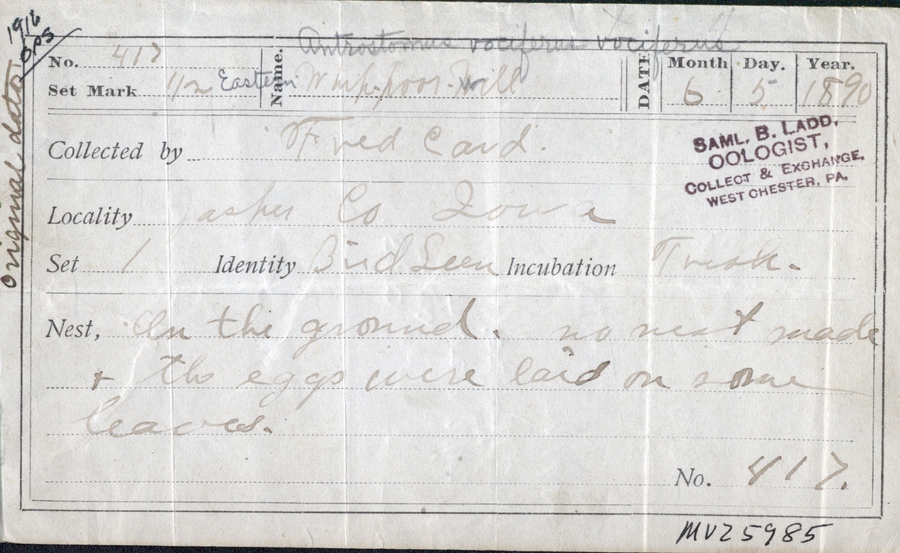 1916
Antrostomus vociferus vociferus
No. 417 Name. Whip-poor-will DATE Month Day. Year.
Set Mark 1/2 Eastern 6 5 1890
SAML. B. LADD,
OOLOGIST,
COLLECT & EXCHANGE.
WEST CHESTER, PA.
Collected by Fred Card.
Locality Jasper Co Iowa
Set 1 Identity Bird Seen Incubation Fresh.
Nest, On the ground. no nest made
+ the eggs were laid on some
leaves.
No. 417.
original data
MVZ5985